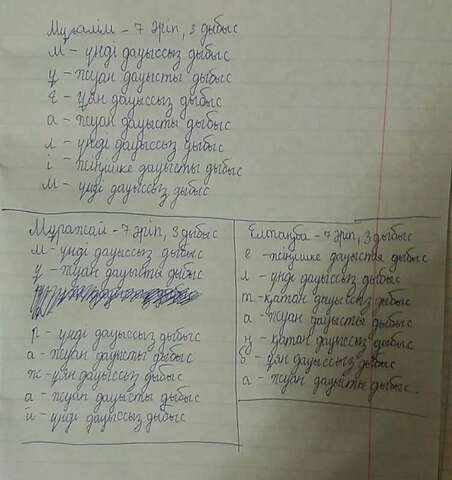 Мұғалім - 7 әріп, 3 дыбыс
м - үнді дауыссыз дыбыс
ұ - жуан дауысты дыбыс
ғ - ұяң дауыссыз дыбыс
а - жуан дауысты дыбыс
л - үнді дауыссыз дыбыс
і - жіңішке дауысты дыбыс
м - үнді дауыссыз дыбыс
Мұражай - 7 әріп, 3 дыбыс
м - үнді дауыссыз дыбыс
ұ - жуан дауысты дыбыс
р - үнді дауыссыз дыбыс
а - жуан дауысты дыбыс
ж - ұяң дауыссыз дыбыс
а - жуан дауысты дыбыс
й - үнді дауыссыз дыбыс
Елтаңба - 7 әріп, 3 дыбыс
е - жіңішке дауысты дыбыс
л - үнді дауыссыз дыбыс
т - қатаң дауыссыз дыбыс
а - жуан дауысты дыбыс
ң - қатаң дауыссыз дыбыс
б - ұяң дауыссыз дыбыс
а - жуан дауысты дыбыс